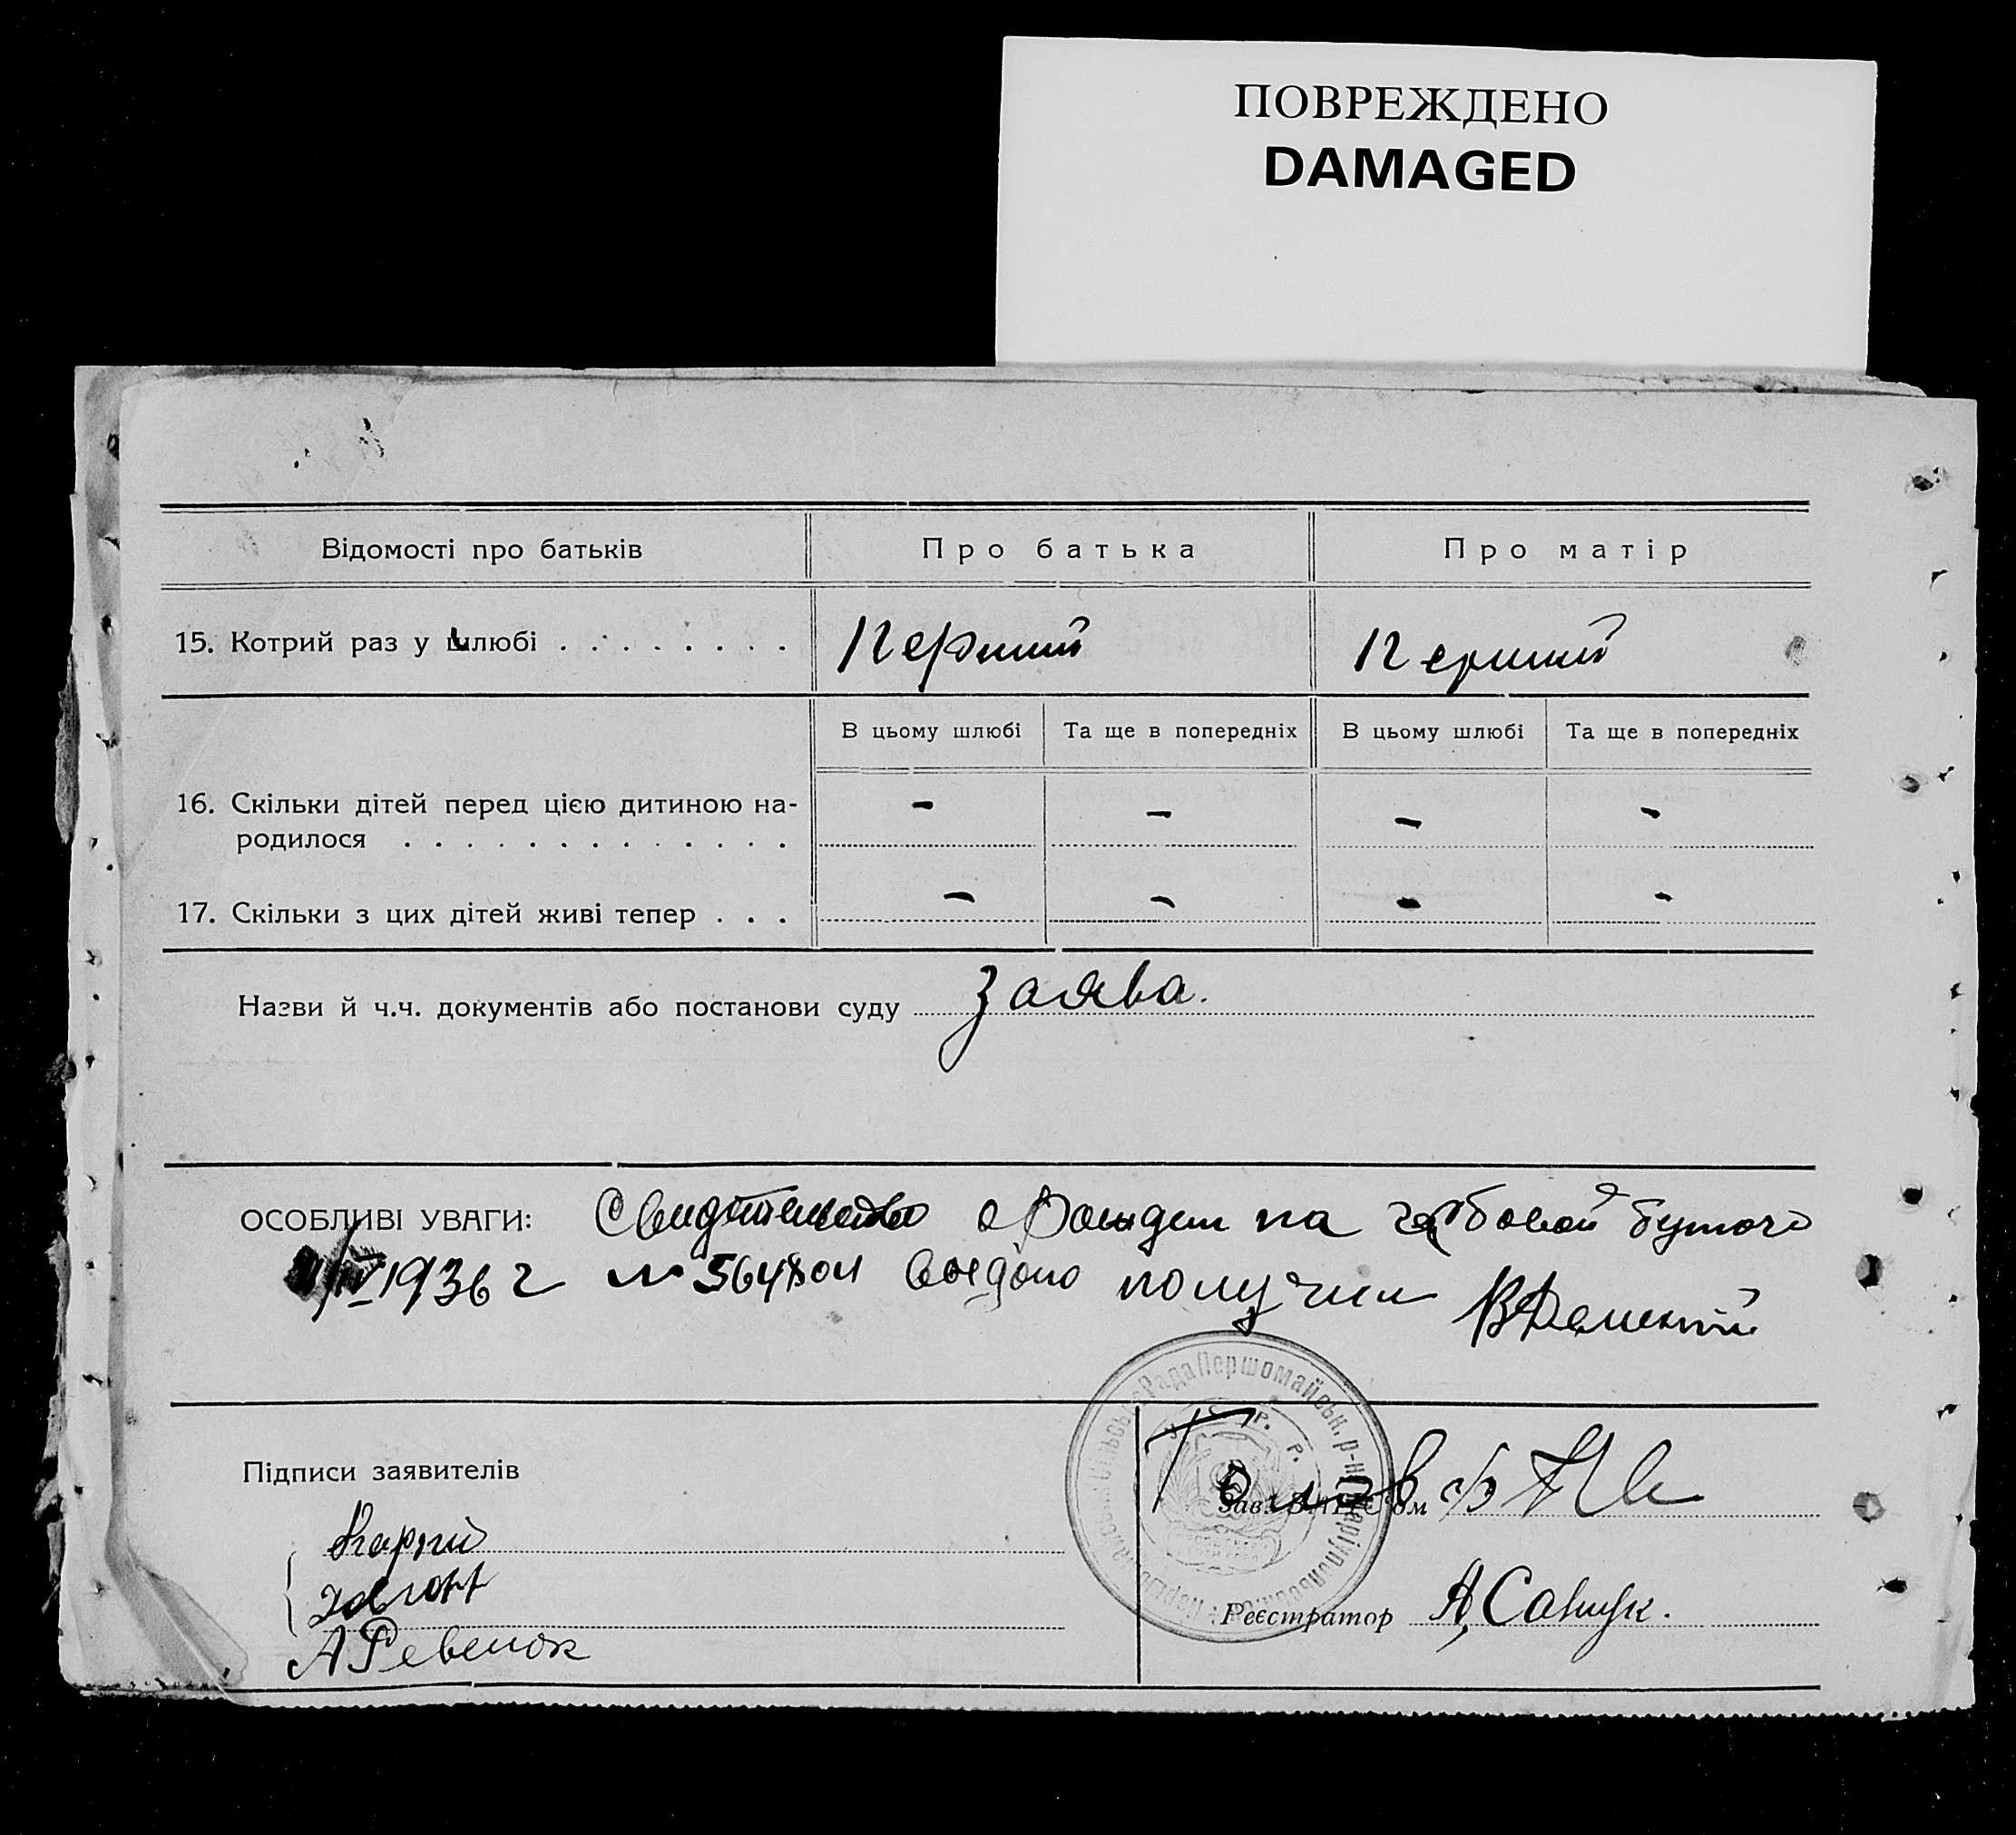 ПОВРЕЖДЕНО
DAMAGED
Відомості про батьків
Про батька
Про матір
15. Котрий раз у шлюбі . . . . . . . .
Перший
Перший
В цьому шлюбі
Та ще в попередніх
В цьому шлюбі
Та ще в попередніх
16. Скільки дітей перед цією дитиною на-
- - - -
родилося . . . . . . . . . . . . .
17. Скільки з цих дітей живі тепер . . .
- - - -
Назви й ч.ч. документів або постанови суду заява.
ОСОБЛИВІ УВАГИ: Свидетельство о на гербовой
1936 г № получил
Рада Першомайськ. р-ну Маріупольськ.
У. С. Р. Р.
Підписи заявителів
Голов с/р
Зав. ЗАГС'ом
Реєстратор А, Савчук.
А Ревенок